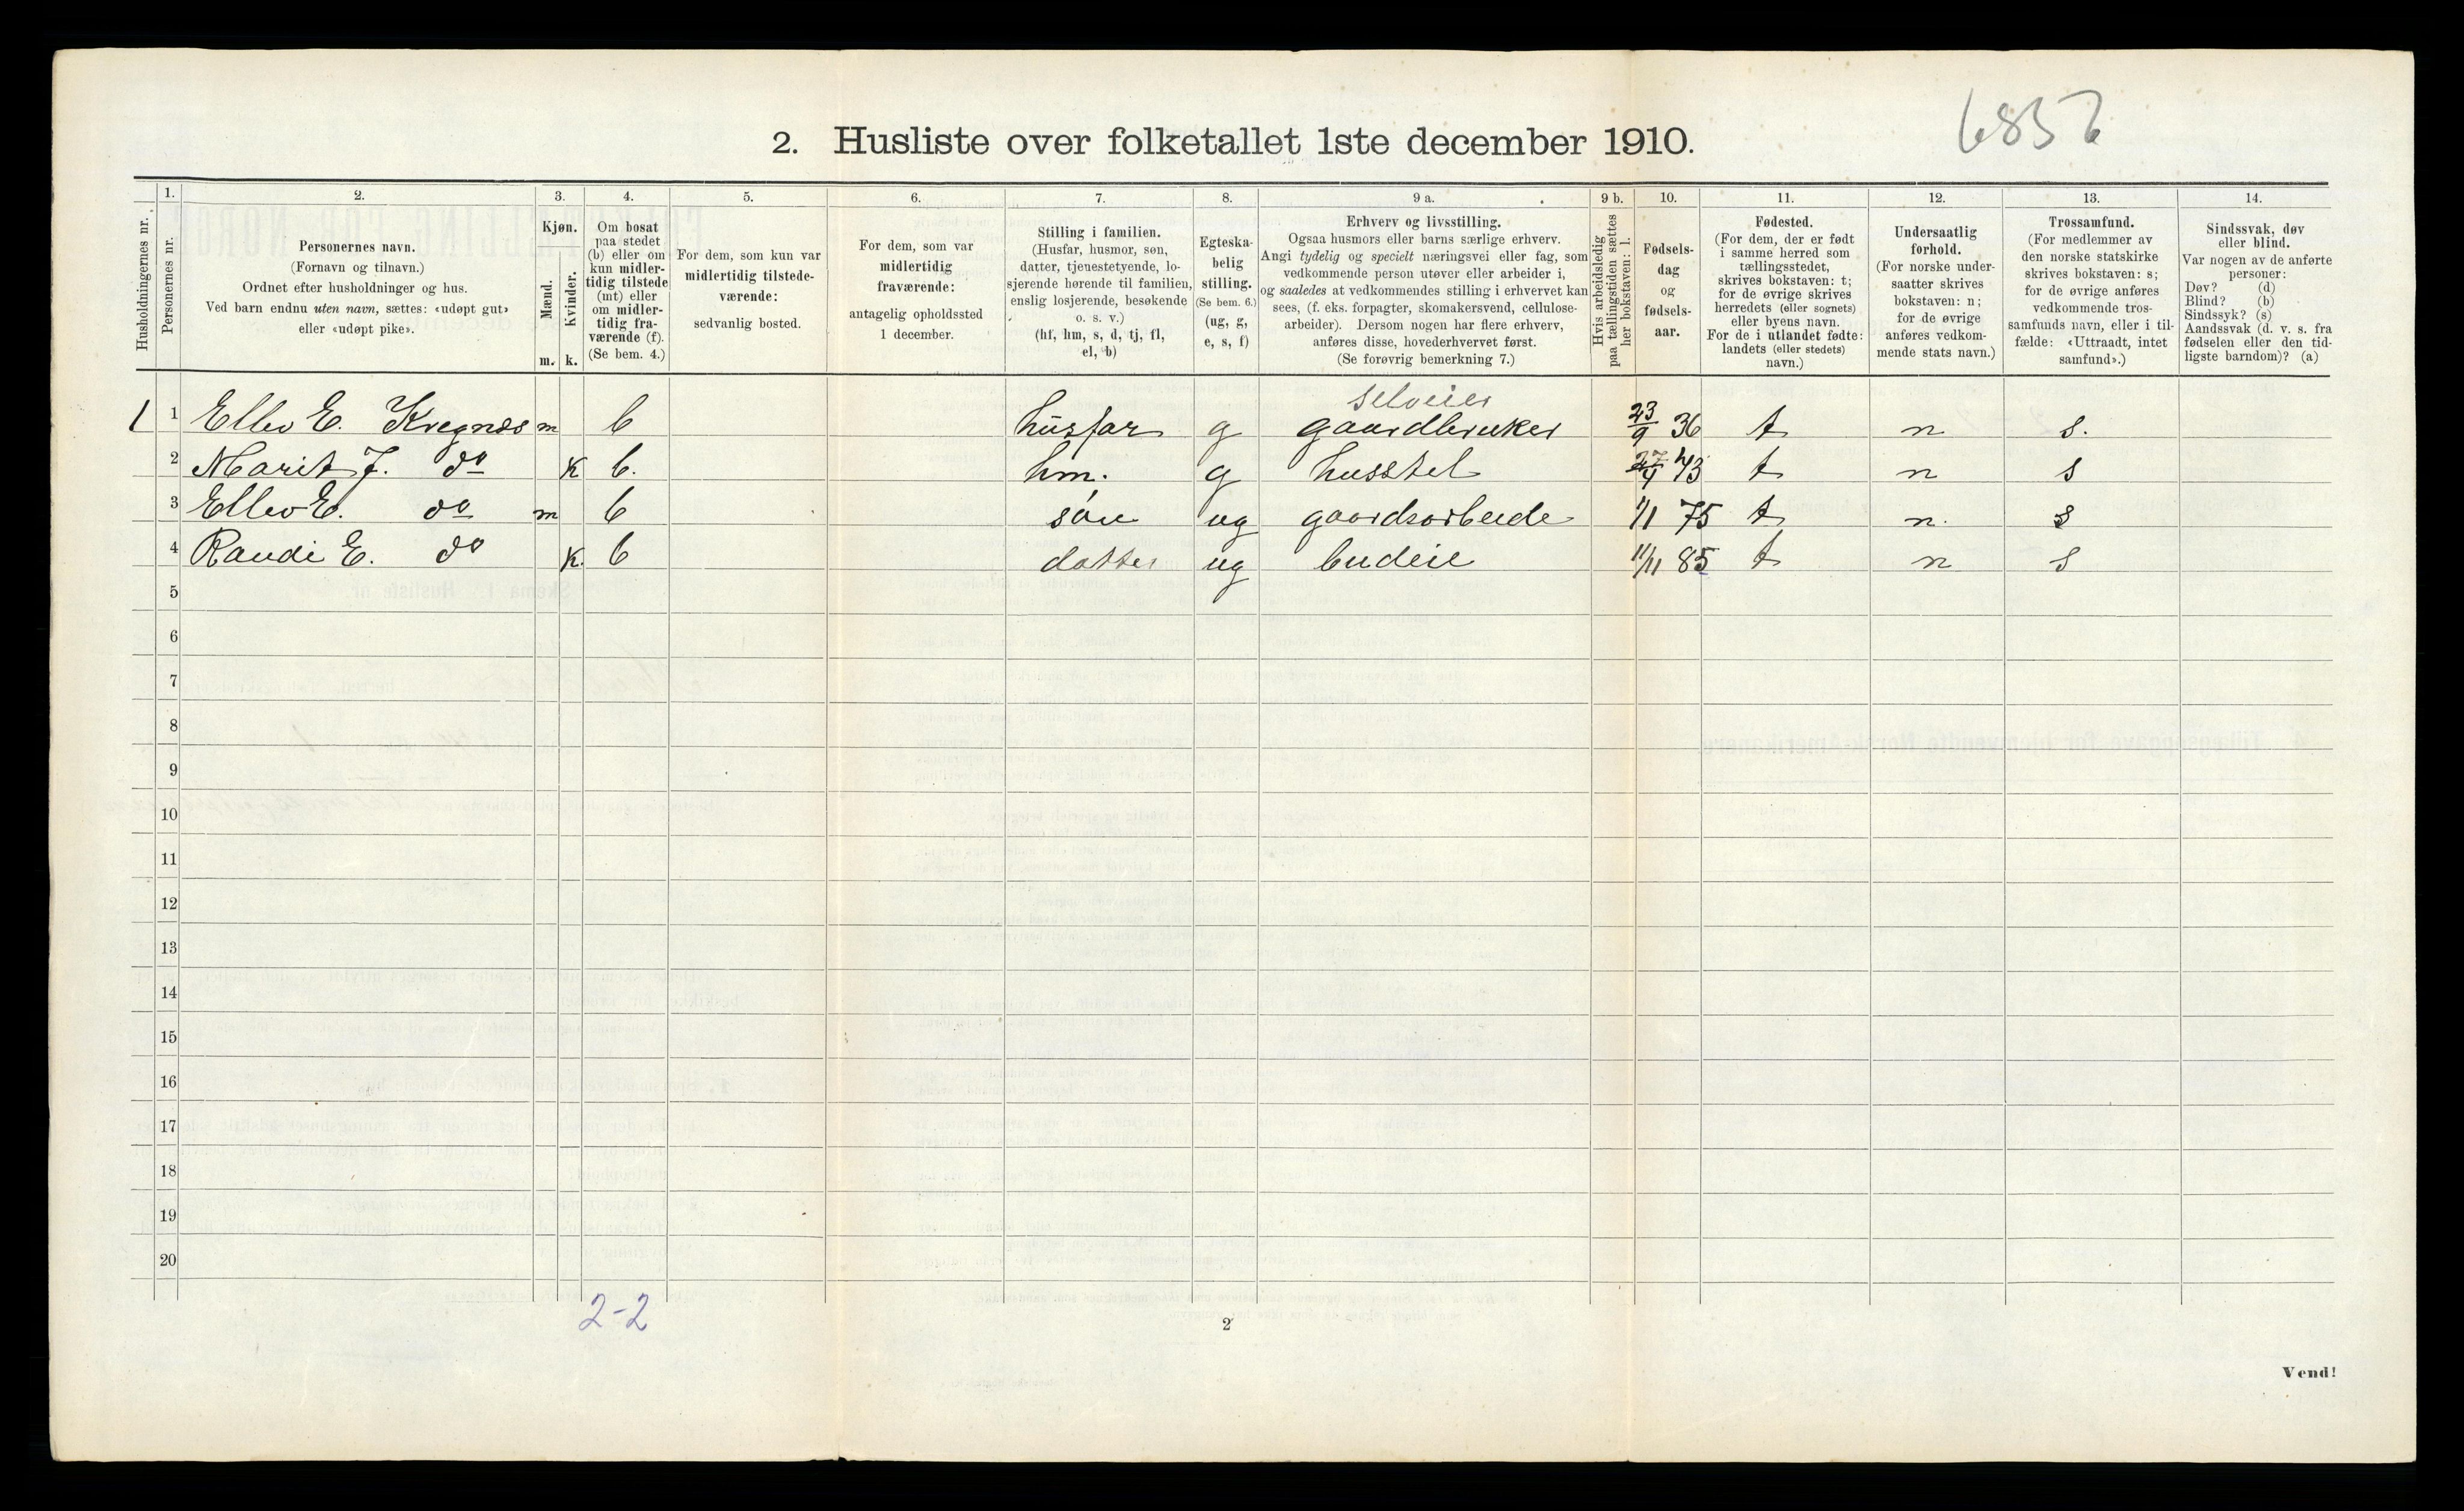 6856
2. Husliste over folketallet 1ste december 1910.
Husholdningernes nr.
1.
Personernes nr.
2.
Personernes navn.
(Fornavn og tilnavn.)
Ordnet efter husholdninger og hus.
Ved barn endnu uten navn, sættes: «udøpt gut»
eller «udøpt pike».
3.
Kjøn.
Mænd.
Kvinder.
m. k.
4.
Om bosat
paa stedet
(b) eller om
kun midler-
tidig tilstede
(mt) eller
om midler-
tidig fra-
værende (f).
(Se bem. 4.)
5.
For dem, som kun var
midlertidig tilstede-
værende:
sedvanlig bosted.
6.
For dem, som var
midlertidig
fraværende:
antagelig opholdssted
1 december.
7.
Stilling i familien.
(Husfar, husmor, søn,
datter, tjenestetyende, lo-
sjerende hørende til familien,
enslig losjerende, besøkende
o. s. v.)
(hf, hm, s, d, tj, fl,
el, b)
8.
Egteska-
belig
stilling.
(Se bem. 6.)
(ug, g,
e, s, f)
9 a.
Erhverv og livsstilling.
Ogsaa husmors eller barns særlige erhverv.
Angi tydelig og specielt næringsvei eller fag, som
vedkommende person utøver eller arbeider i,
og saaledes at vedkommendes stilling i erhvervet kan
sees, (f. eks. forpagter, skomakersvend, cellulose-
arbeider). Dersom nogen har flere erhverv,
anføres disse, hovederhvervet først.
(Se forøvrig bemerkning 7.)
9 b.
Hvis arbeidsledig
paa tællingstiden sættes
her bokstaven: l.
10.
Fødsels-
dag
og
fødsels-
aar.
11.
Fødested.
(For dem, der er født
i samme herred som
tællingsstedet,
skrives bokstaven: t;
for de øvrige skrives
herredets (eller sognets)
eller byens navn.
For de i utlandet fødte:
landets (eller stedets)
navn.)
12.
Undersaatlig
forhold.
(For norske under-
saatter skrives
bokstaven: n;
for de øvrige
anføres vedkom-
mende stats navn.)
13.
Trossamfund.
(For medlemmer av
den norske statskirke
skrives bokstaven: s;
for de øvrige anføres
vedkommende tros-
samfunds navn, eller i til-
fælde: «Uttraadt, intet
samfund».)
14.
Sindssvak, døv
eller blind.
Var nogen av de anførte
personer:
Døv? (d)
Blind? (b)
Sindssyk? (s)
Aandssvak (d. v. s. fra
fødselen eller den tid-
ligste barndom)? (a)
selveier
1 1 Ellev E. Kvegnæs m b husfar g gaardbruker 23/9 36 t n s.
2 Marit J. do k b. hm. g husstel 27/4 43 t n s
3 Ellev E. do m b søn ug gaardsarbeide 1/1 75 t n. s
4 Randi E. do k. b datter ug budeie 11/11 85 t n s
5
6
7
8
9
10
11
12
13
14
15
16
17
18
19
20
2-2
2
Vend!